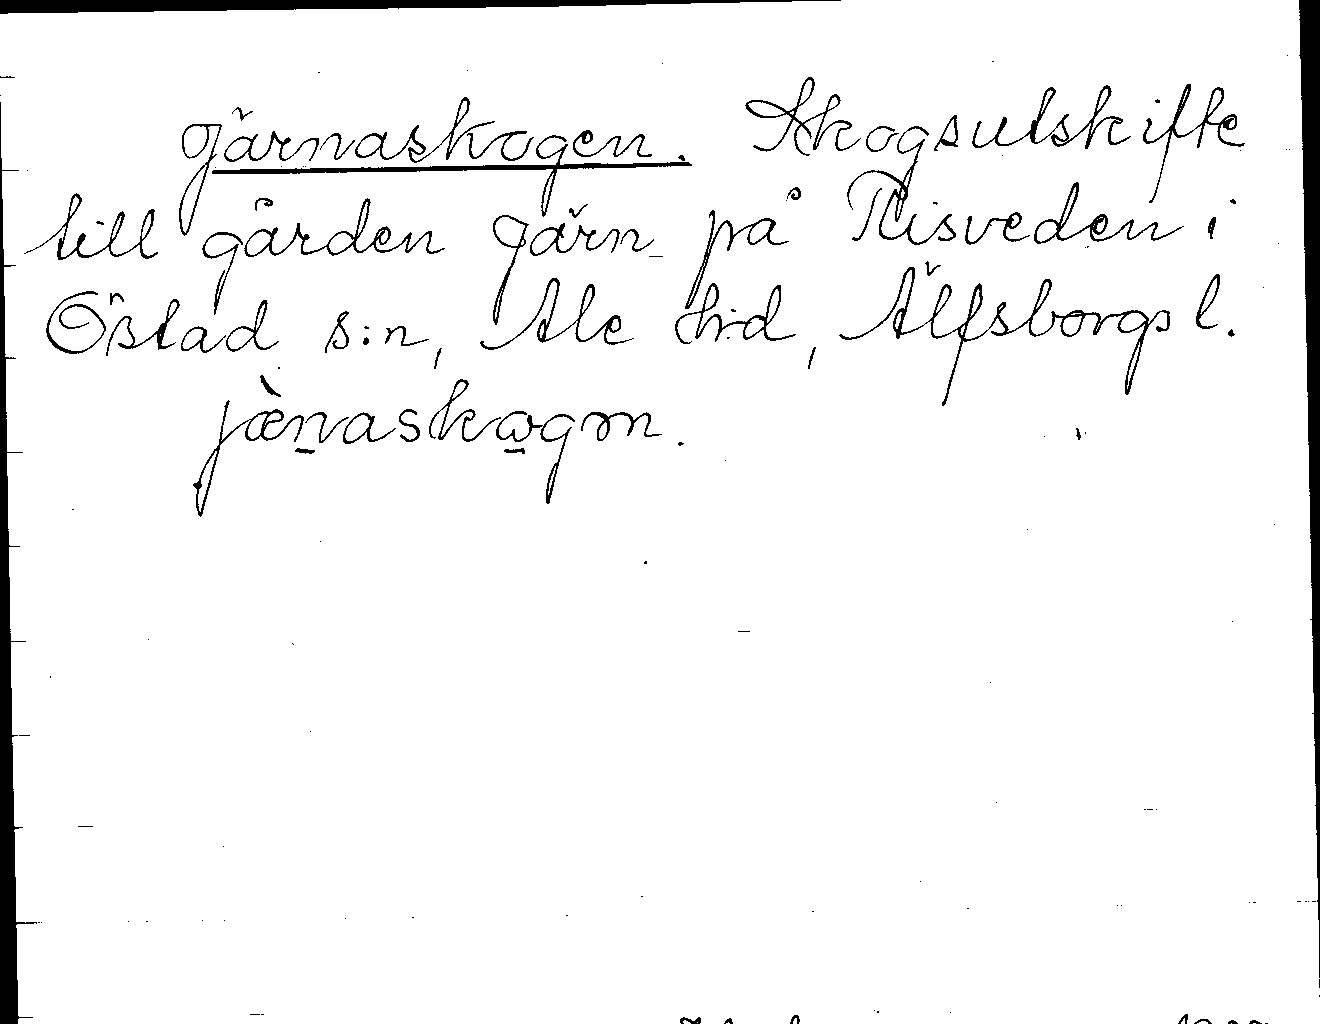 Järnaskogen. Skogsutskifte
till gården Järn på Risveden i
Östad s:n, Ale hd, Älfsborgs l.
jæ̀n̠asko̠gɘn.